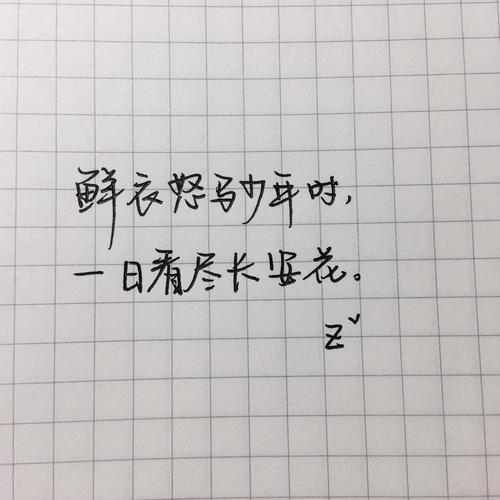 鲜衣怒马少年时,
一日看尽长安花。
Z